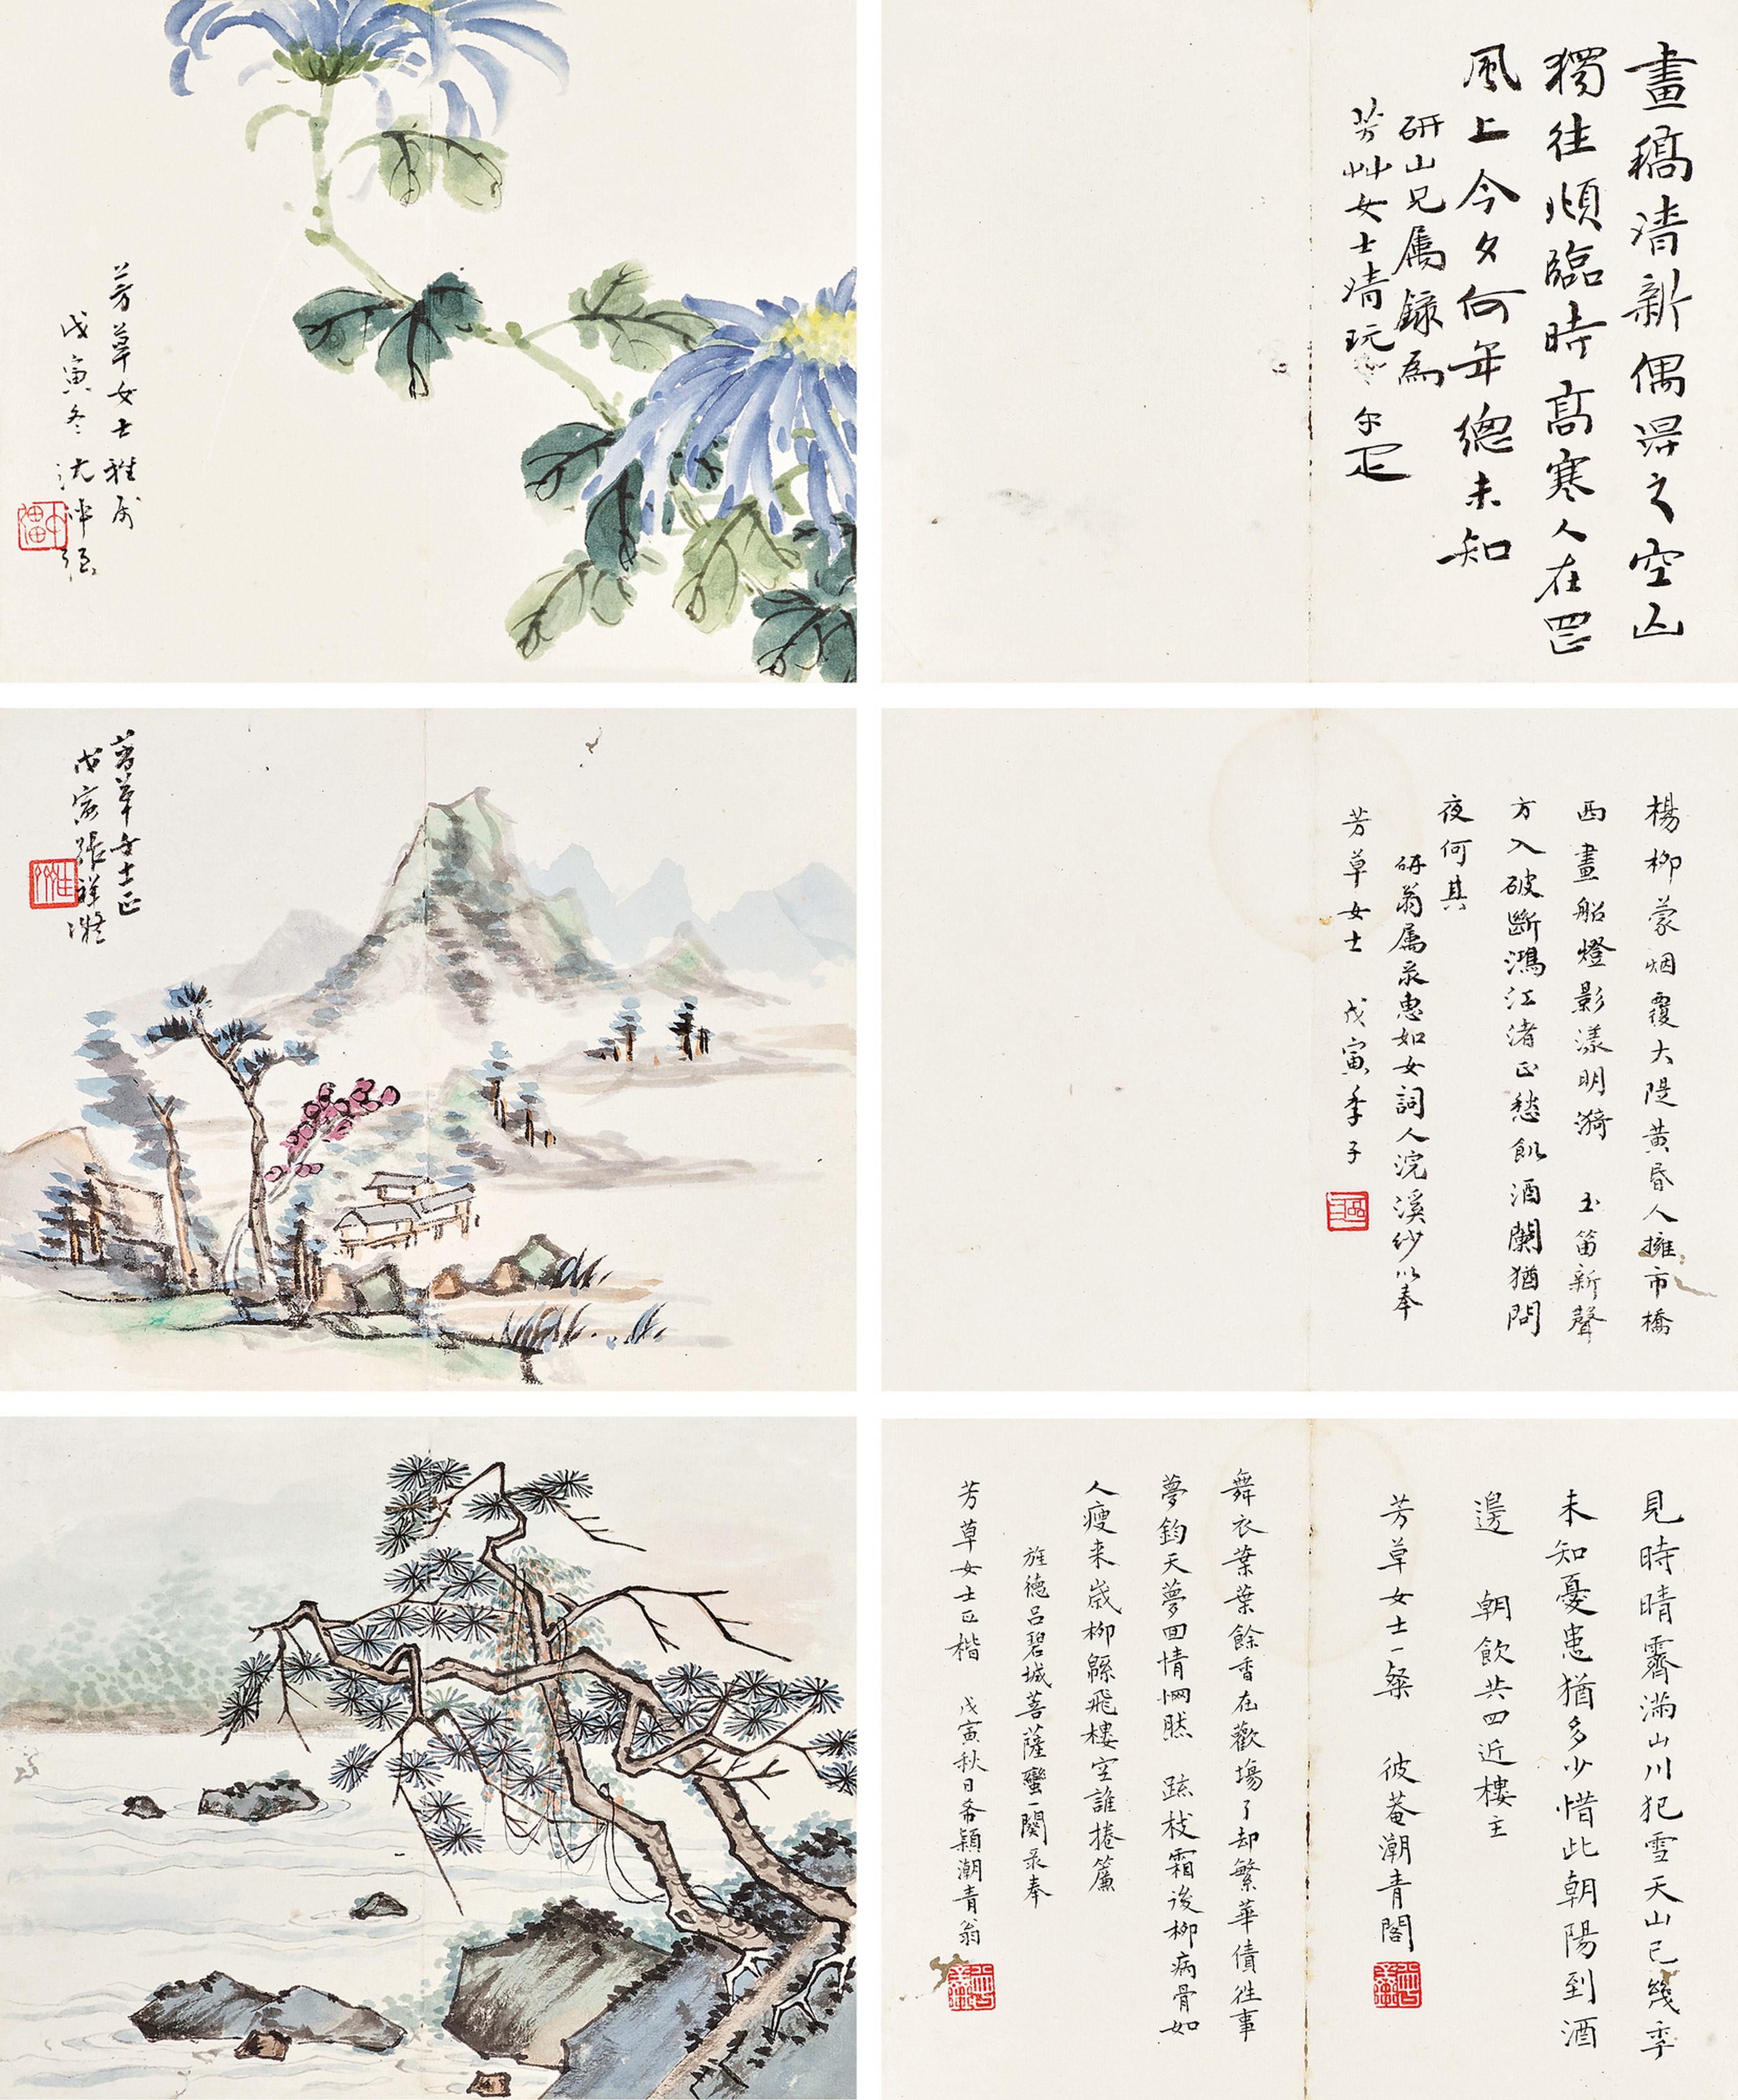 芳草女士雅属
戊寅冬沈仲强
畫稿清新偶得之空山
獨往順臨時高寒人在罡
風上今夕何年總未知
研山兄属録為
芳艸女士清玩 尔疋
芳草女士正
戊寅張祥凝
楊柳蒙烟覆大隄黄昏人擁市橋
西畫船燈影漾明漪 玉笛新聲
方入破斷鴻江渚正愁飢酒闌猶問
夜何其
研翁属录惠如女詞人浣溪紗以奉
芳草女士 戊寅季子
見時晴霽滿山川犯雪天山已幾年
未知憂患猶多少惜此朝陽到酒
邊 朝飲共四近樓主
芳草女士一粲 彼菴潮青閣
舞衣葉葉餘香在歡場了却繁華債往事
夢鈞天夢回情惘然 疏枝霜後柳病骨如
人瘦来歲柳緜飛樓空誰捲簾
旌德吕碧城菩薩蠻一闋录奉
芳草女士正楷 戊寅秋日希穎潮青翁